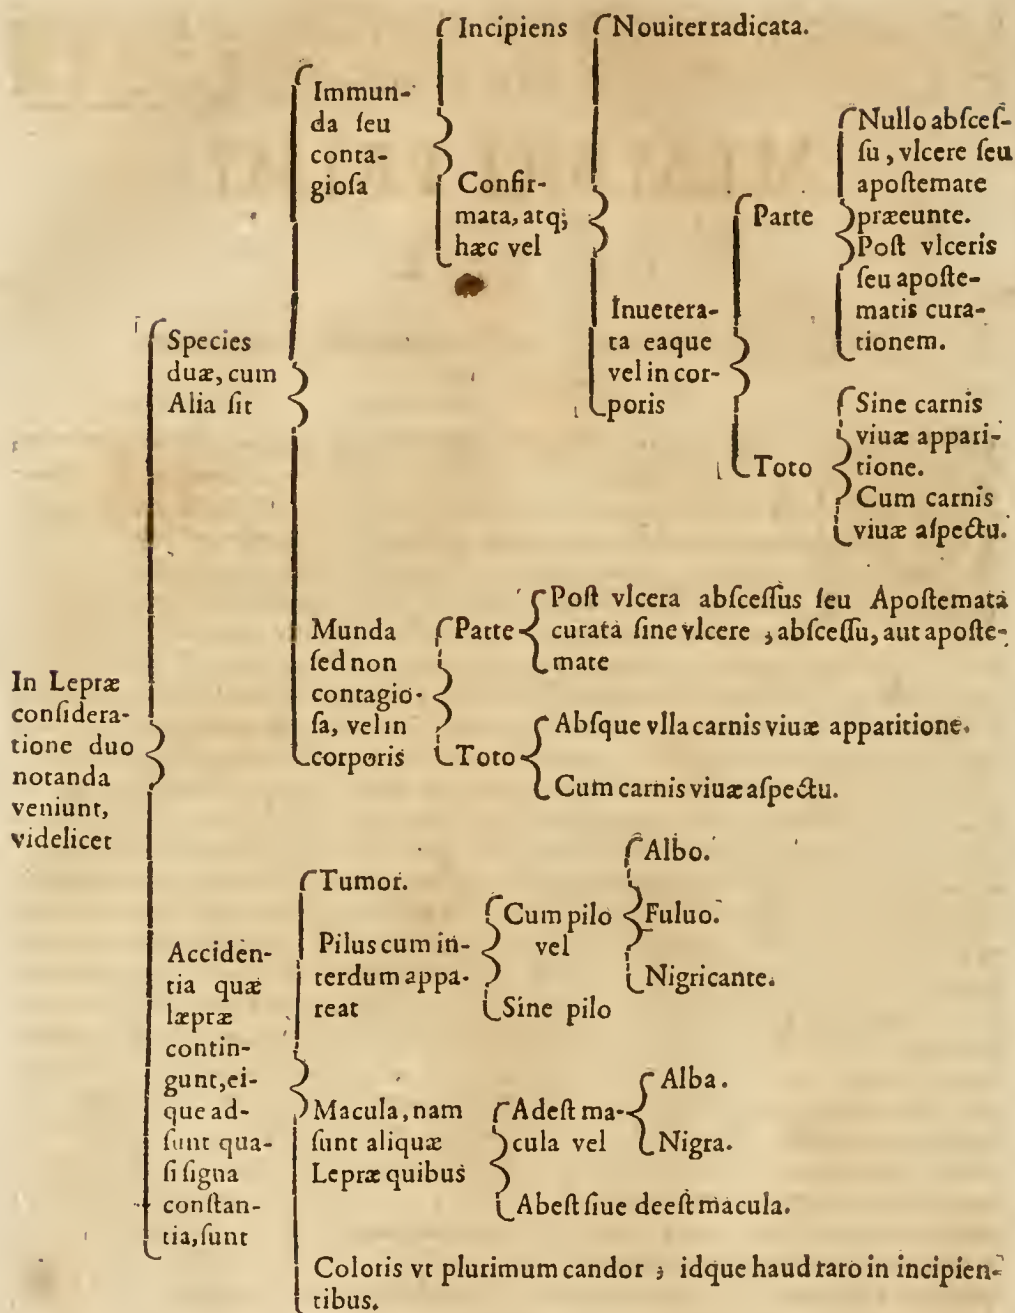 In Lepræ
conſidera-
tione duo
notanda
veniunt,
videlicet
Species
duæ, cum
Alia ſit
Immun-
da ſeu
conta-
gioſa
Incipiens
Confir-
mata, atq;
hæc vel
Nouiter radicata.
Inuetera-
ta eaque
vel in cor-
poris
Parte
Nullo abſceſ-
ſu, vlcere ſeu
apoſtemate
præeunte.
Poſt vlceris
ſeu apoſte-
matis cura-
tionem.
Toto
Sine carnis
viuæ appari-
tione.
Cum carnis
viuæ aſpectu.
Munda
ſed non
contagio-
ſa, vel in
corporis
Parte
Poſt vlcera abſceſſus ſeu Apoſtemata
curata ſine vlcere ; abſceſſu, aut apoſte-
mate
Toto
Abſque vlla carnis viuæ apparitione.
Cum carnis viuæ aſpectu.
Acciden-
tia quæ
læpræ
contin-
gunt, ei-
que ad-
ſunt qua-
ſi ſigna
conſtan-
tia, ſunt
Tumor.
Pilus cum in-
terdum appa-
reat
Cum pilo
vel
Albo.
Fuluo.
Nigricante.
Sine pilo
Macula, nam
ſunt aliquæ
Lepræ quibus
Adeſt ma-
cula vel
Alba.
Nigra.
Abeſt ſiue deeſt macula.
Coloris vt plurimum candor ; idque haud raro in incipien-
tibus.